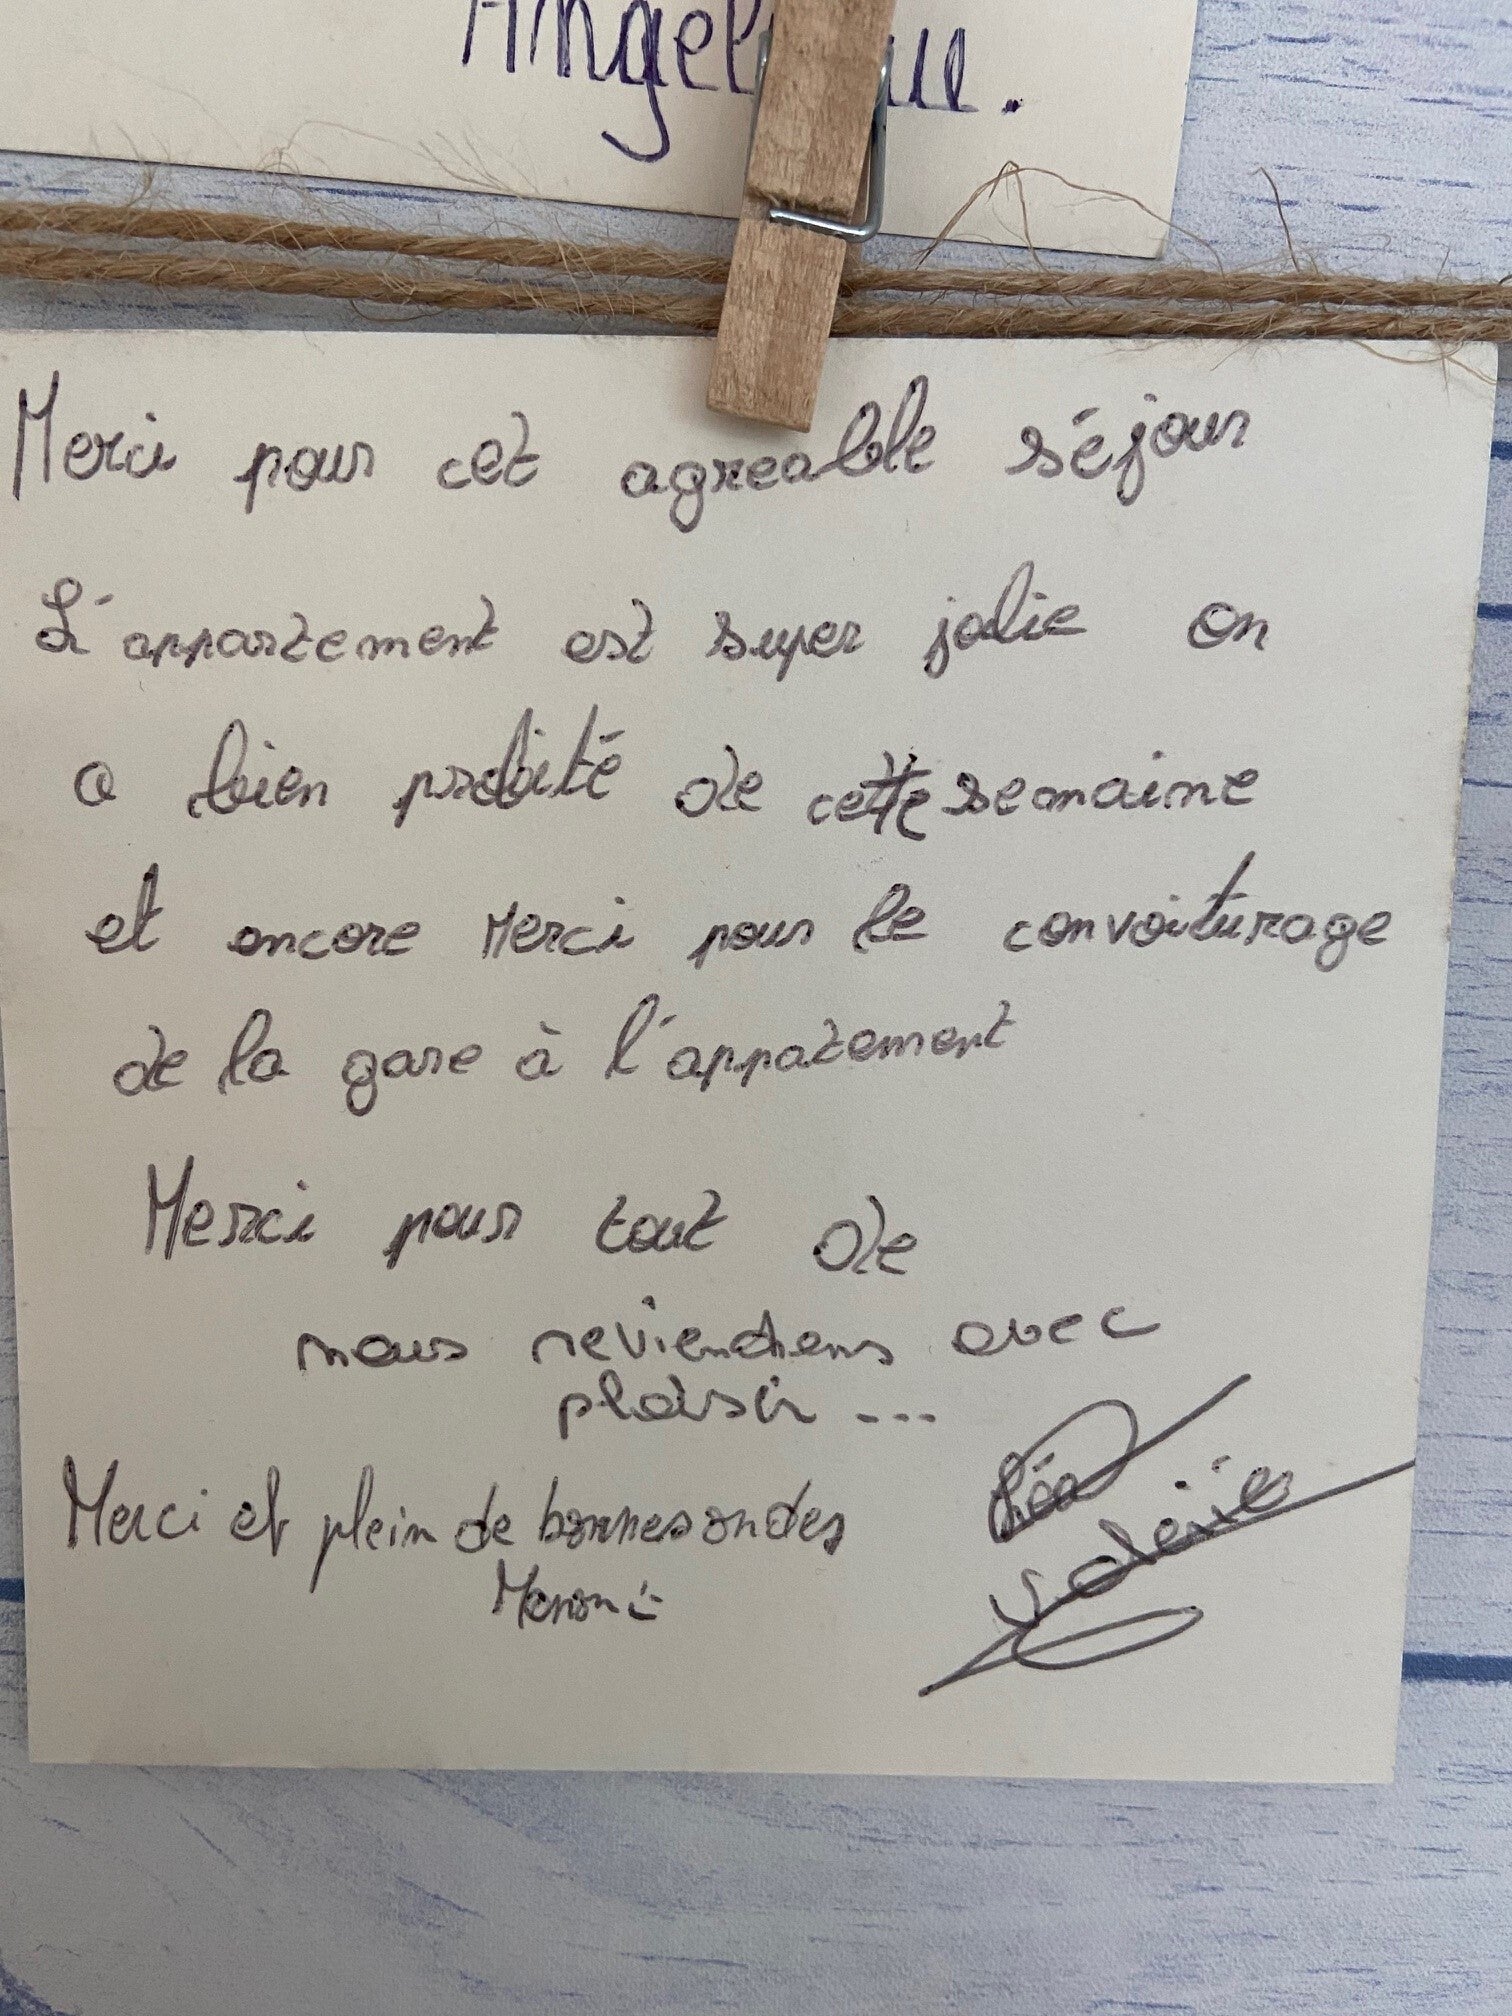 Merci pour cet agreable séjour
L'appartement est super jolie on
a bien profité de cette semaine
et encore Merci pour le convoiturage
de la gare à l'appatement
Merci pour tout de
nous reviendrons avec
plaisir ...
Merci et plein de bonnes ondes
Léa